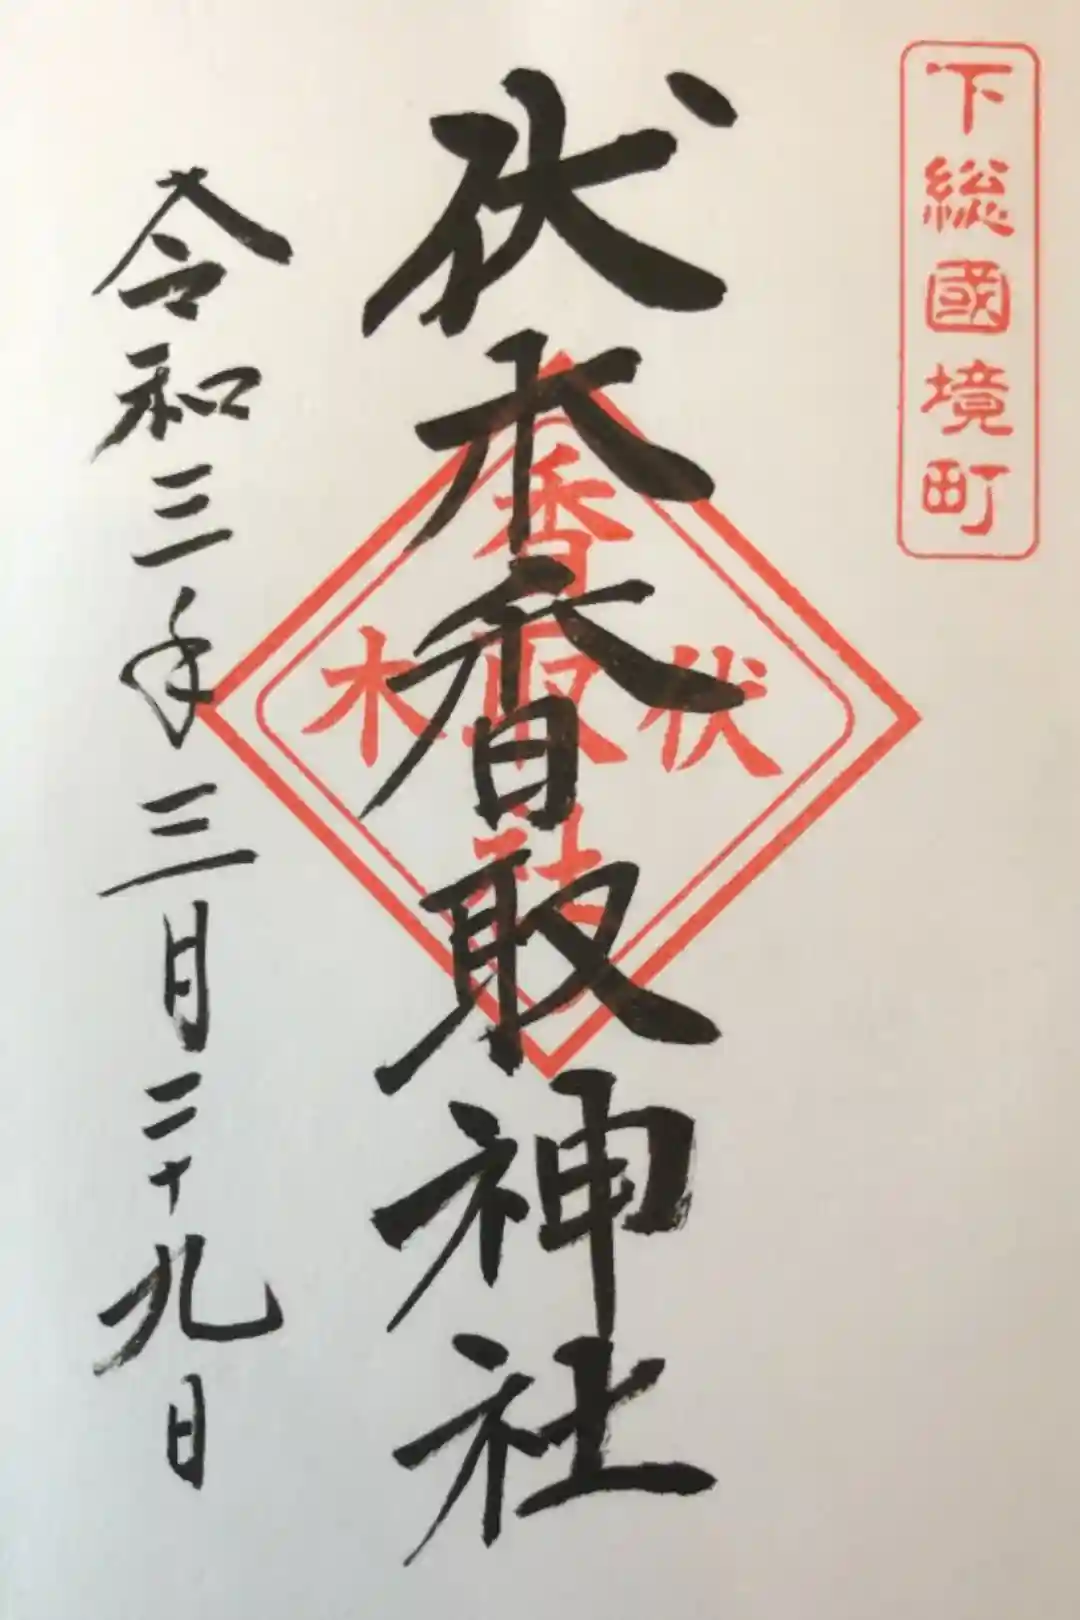 下総國境町
伏木香取神社
香取社
伏木
令和三年三月二十九日